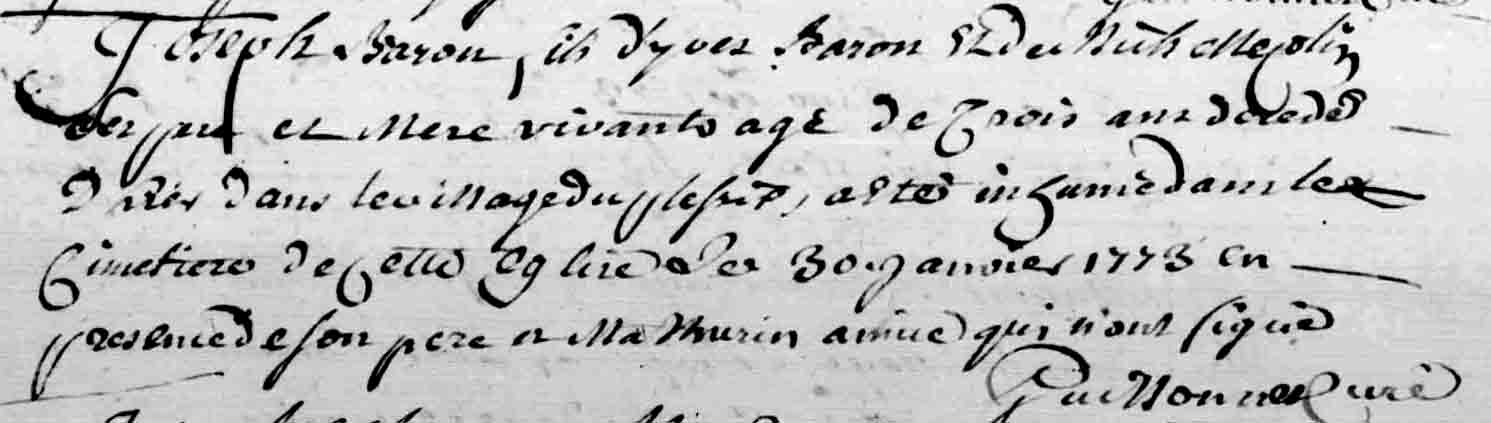 Joseph Baron, fils d'yves Baron Et de
ses pere et Mere vivants agé de Trois ans decedé
dans le village du plessix, a Eté inhumé dans le
Cimetiere de Cette Eglise Le 30 Janvier 1773 en
presence de son pere et Mathurin qui n'ont signé
Curé